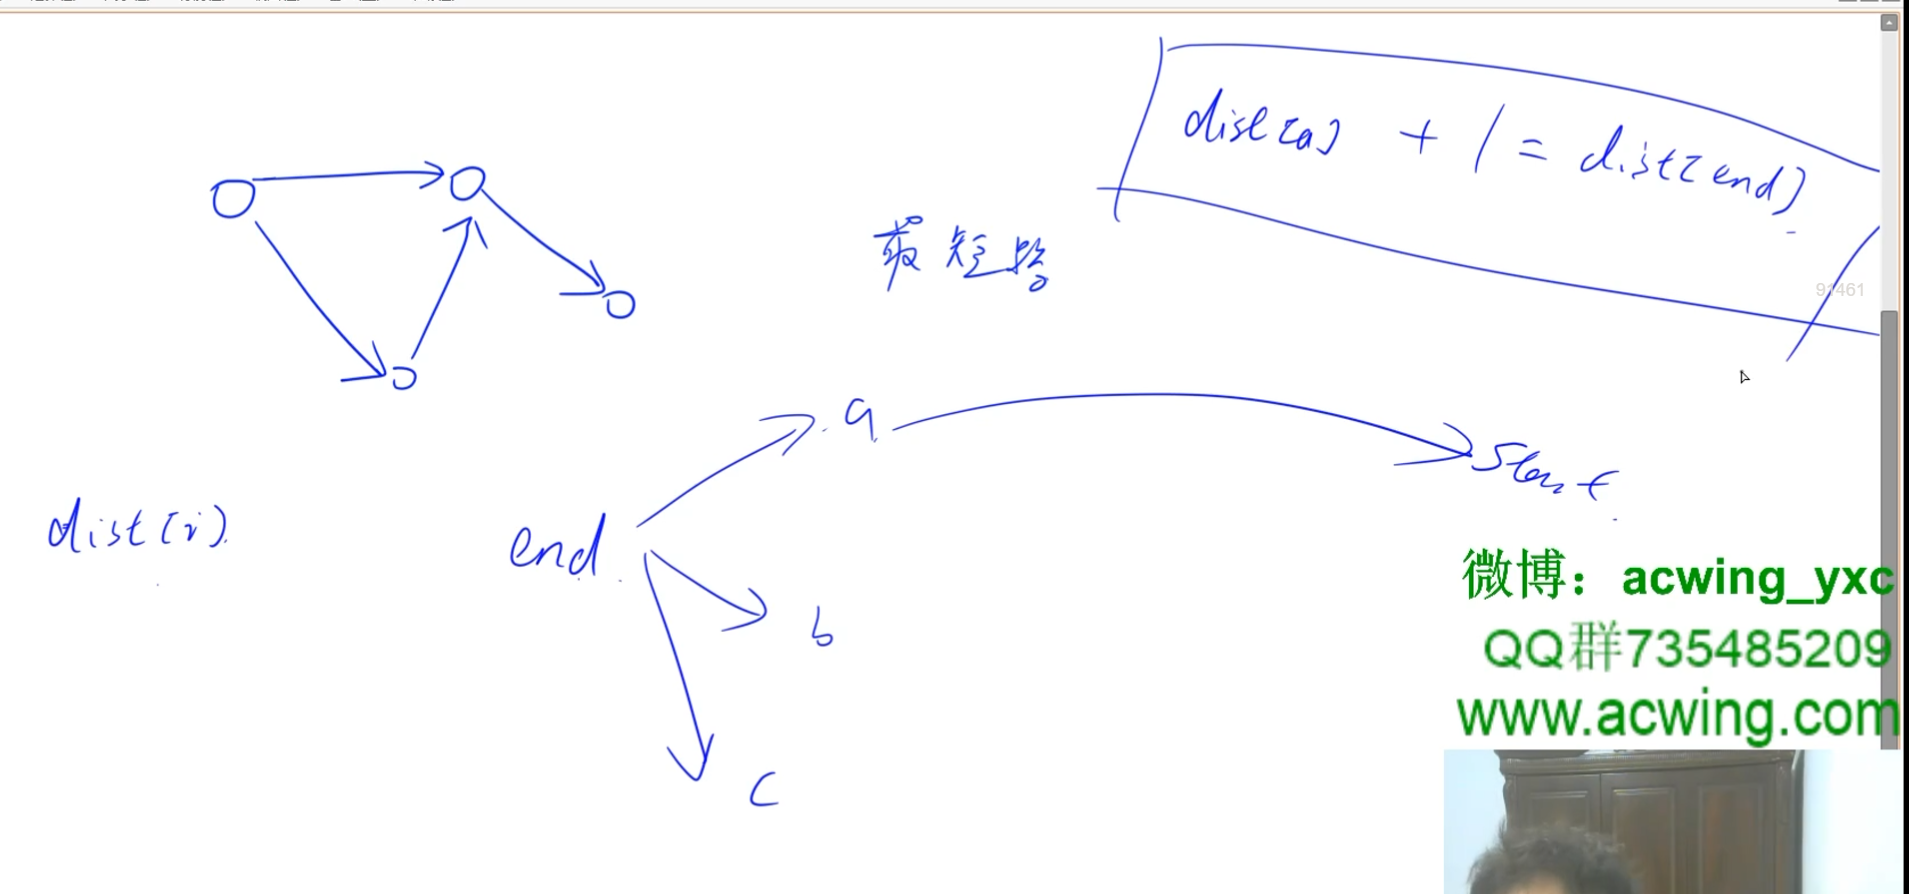 dist[a] + 1 = dist[end]
最短路
91461
a
start
dist(i)
end
b
c
微博：acwing_yxc
QQ群735485209
www.acwing.com